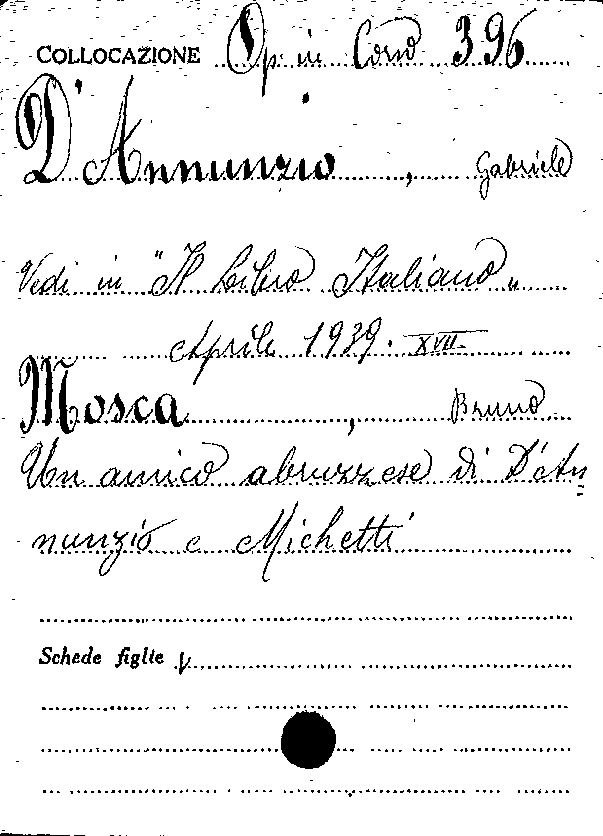 COLLOCAZIONE Op. in Corso 396
D'Annunzio, Gabriele
Vedi in "Il Libro Italiano"
Aprile 1939. XVII
Mosca, Bruno
Un amico abruzzese di D'An=
nunzio e Michetti
Schede figlie